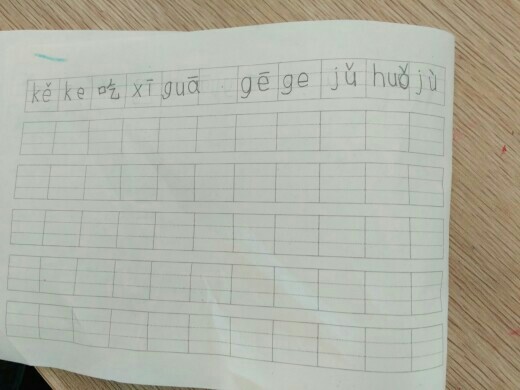 kě ke 吃 xī guā gē ge jǔ huǒ jù